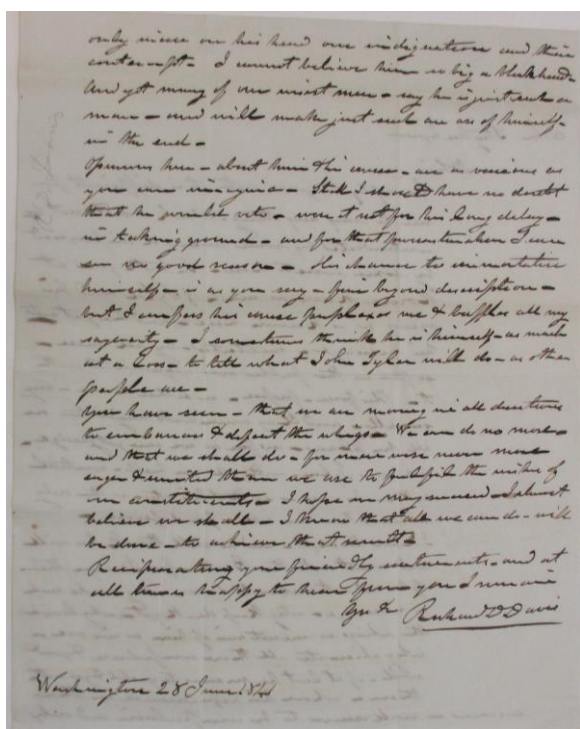 only incur on his head our indignation and their
contempt - I cannot believe him so big a blockhead -
And yet many of our wisest men - say he is just such a
man - and will make just such an ass of himself -
in the end -
Opinions here - about him & his course - are as various as
you can imagine - Still I should have no doubt
that he would veto - were it not for his long delay -
in taking ground - and for that procrastination I can
see no good reason - His chance to immortalize
himself - is as you say - fine beyond description -
but I confess his course perplexes me & baffles all my
sagacity - I sometimes think he is himself - as much
at a loss - to tell what John Tyler will do - as other
people are -
You have seen - that we are moving in all directions
to embarrass & defeat the whigs - We can do no more -
and that we shall do - for men were never more
eager & united than we are to fulfil the wishes of
our constituents - I hope we may succeed - I almost
believe we shall - I know that all we can do - will
be done - to achieve that result -
Reciprocating your friendly sentiments - and at
all times happy to hear from you I remain
Richard D Davis
Washington 28 June 1841